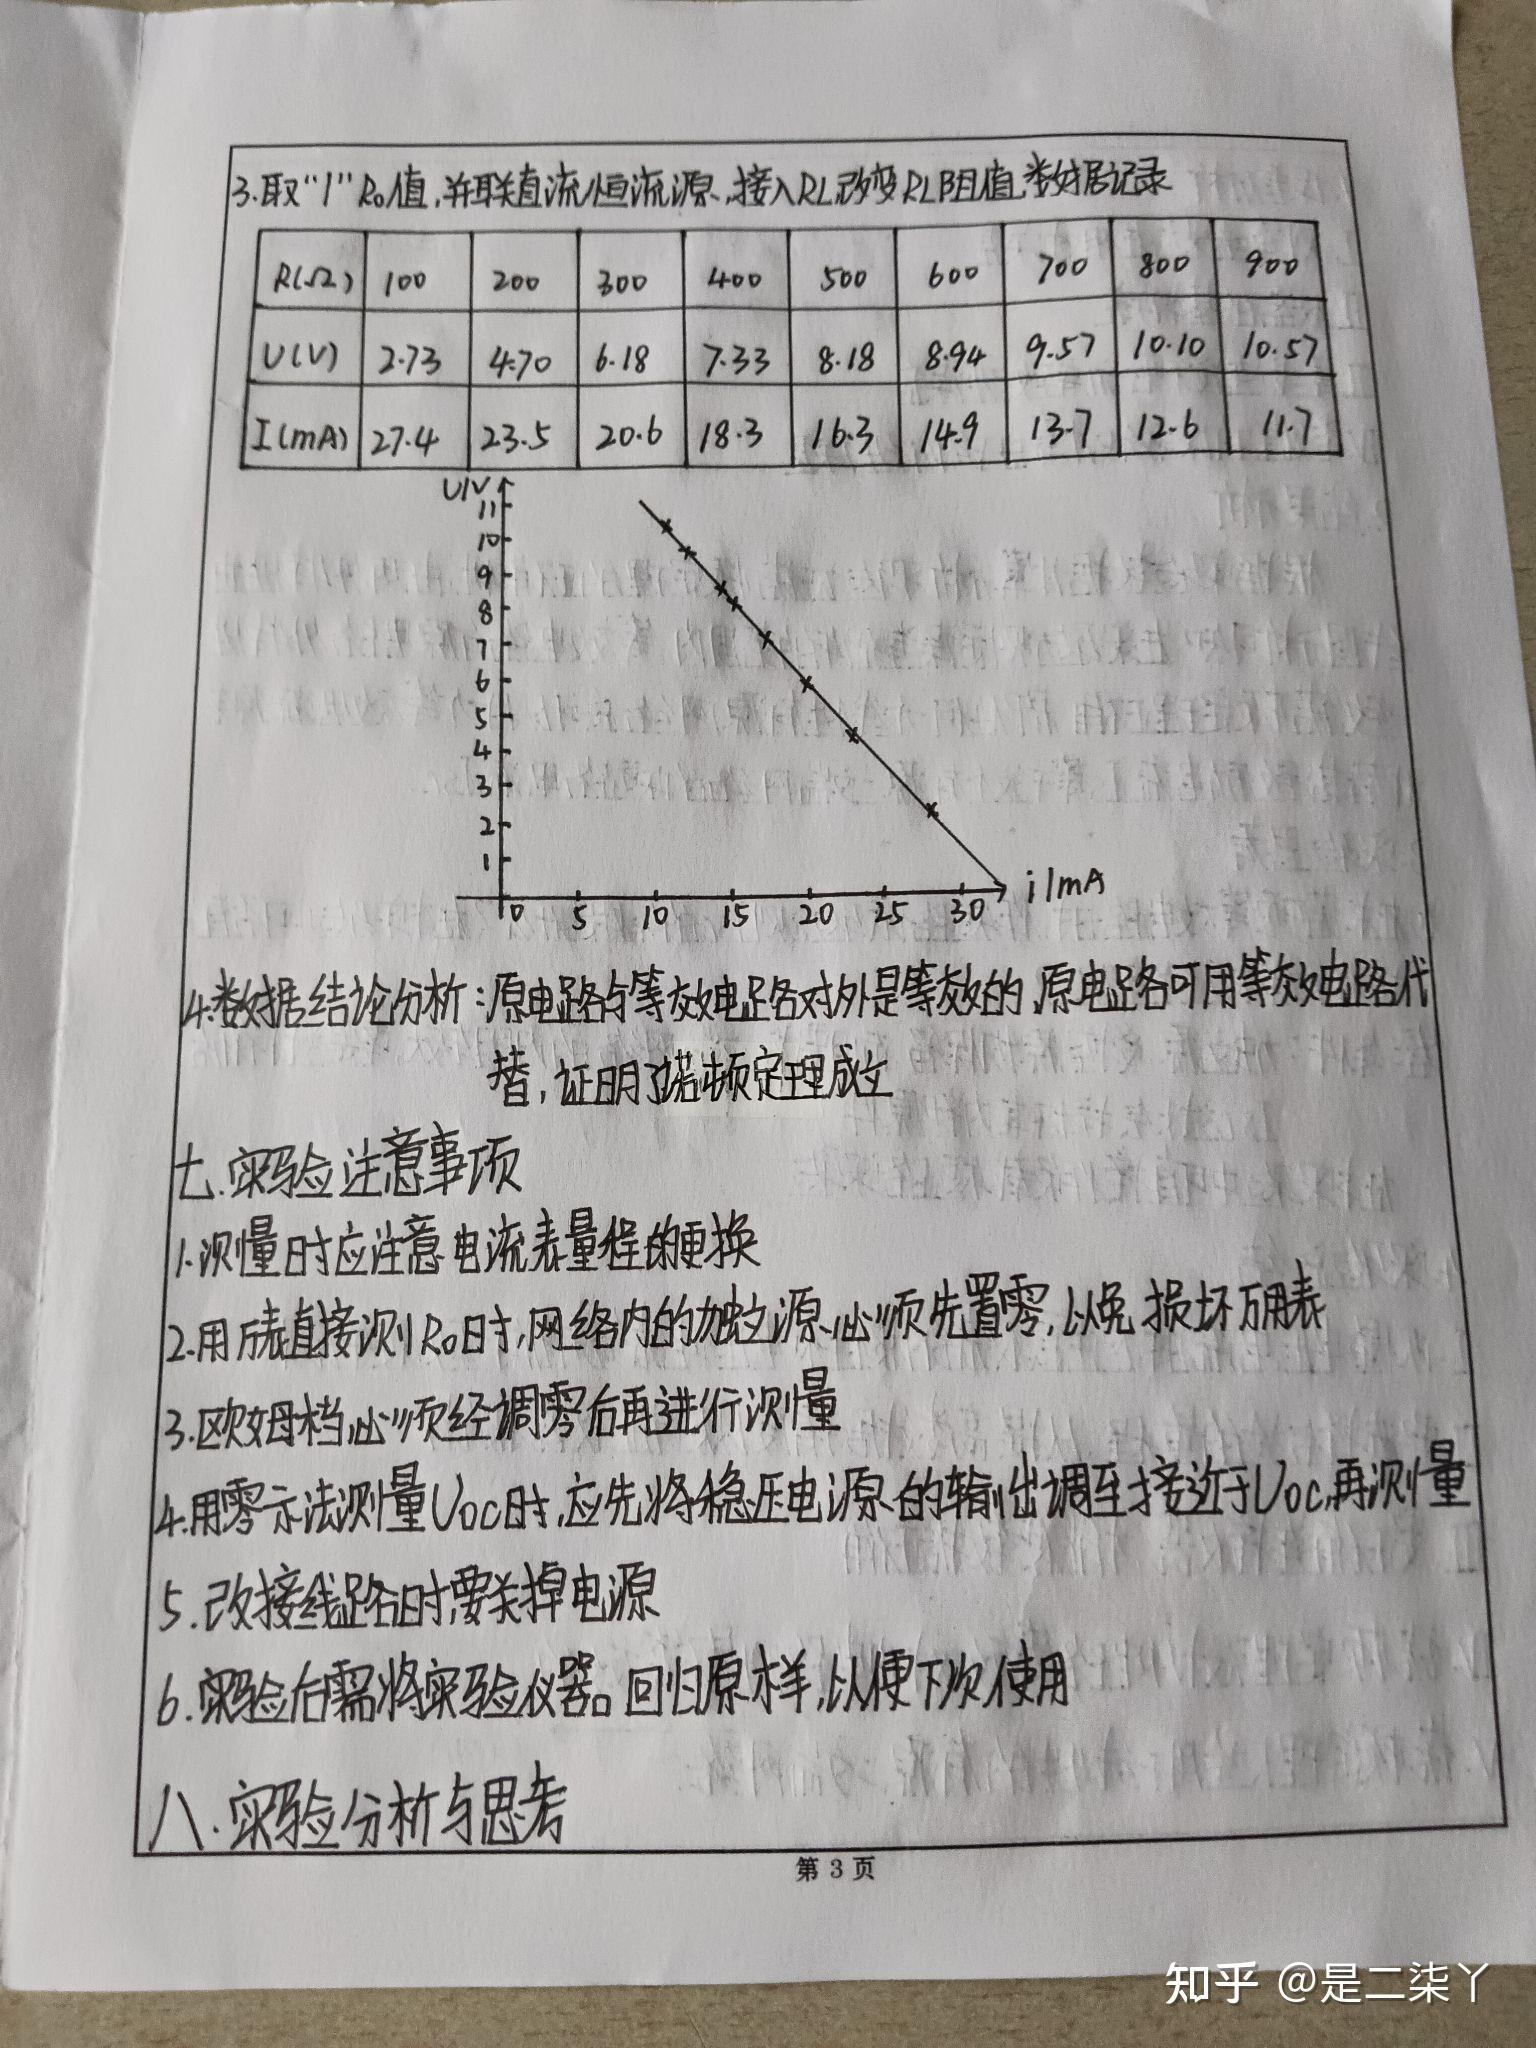 3.取“1”R₀值,并联直流恒流源,接入RL改变RL阻值,数据记录
R(Ω) 100 200 300 400 500 600 700 800 900
U(V) 2.73 4.70 6.18 7.33 8.18 8.94 9.57 10.10 10.57
I(mA) 27.4 23.5 20.6 18.3 16.3 14.9 13.7 12.6 11.7
U/V
11
10
9
8
7
6
5
4
3
2
1
0 5 10 15 20 25 30 i/mA
4.数据结论分析:原电路与等效电路对外是等效的,原电路可用等效电路代
替,证明了诺顿定理成立
七.实验注意事项
1.测量时应注意电流表量程的更换
2.用万表直接测R₀时,网络内的独立源必须先置零,以免损坏万用表
3.欧姆档必须经调零后再进行测量
4.用零示法测量UOC时,应先将稳压电源的输出调至接近于UOC,再测量
5.改接线路时,要关掉电源
6.实验后需将实验仪器。回归原样,以便下次使用
八.实验分析与思考
第 3 页
知乎 @是二柒丫